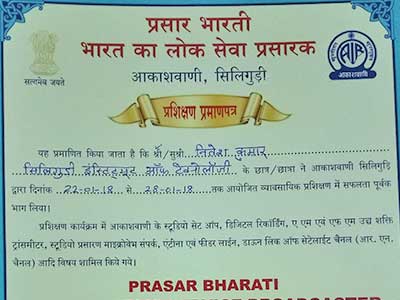 प्रसार भारती
भारत का लोक सेवा प्रसारक
आकाशवाणी, सिलिगुड़ी
सत्यमेव जयते
AIR
आकाशवाणी
प्रशिक्षण प्रमाणपत्र
यह प्रमाणित किया जाता है कि श्री/सुश्री जितेश कुमार
सिलिगुड़ी इंस्टिट्यूट ऑफ टेक्नोलॉजी के छात्र/छात्रा ने आकाशवाणी सिलिगुड़ि
द्वारा दिनांक 22-01-18 से 28-01-18 तक आयोजित व्यावसायिक प्रशिक्षण में सफलता पूर्वक
भाग लिया।
प्रशिक्षण कार्यक्रम में आकाशवाणी के स्टूडियो सेट ऑप, डिजिटल रिकॉर्डिंग, ए एम एवं एफ एम उच्च शक्ति
ट्रांसमीटर, स्टूडियो प्रसारण माइक्रोवेभ संपर्क, एंटीना एवं फीडर लाईन, डाऊन लिंक ऑफ सेटेलाईट चैनल (आर. एन.
चैनल) आदि विषय शामिल किये गये।
PRASAR BHARATI